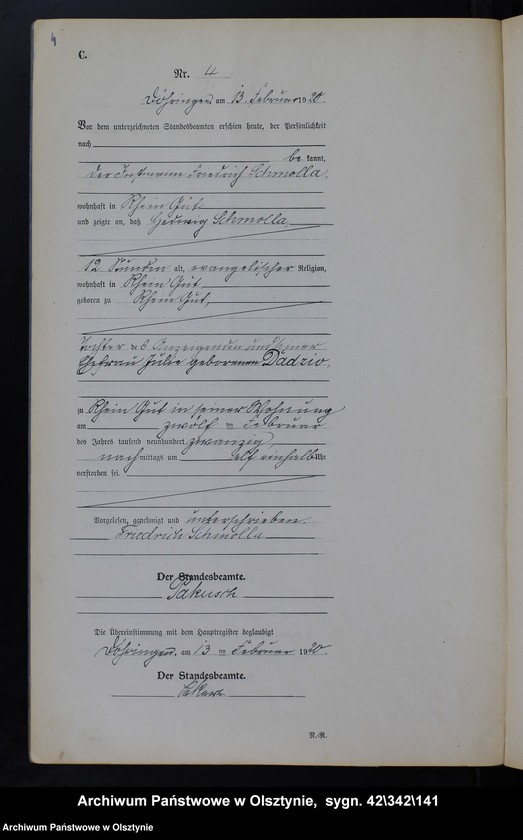 4
C.
Nr. 4
Döhringen am 13. Februar 1920
Vor dem unterzeichneten Standesbeamten erschien heute, der Persönlichkeit
nach
be kannt,
der Instmann Friedrich Schmolla,
wohnhaft in Rhein Gut
und zeigte an, daß Hedwig Schmolla,
12 Stunden alt, evangelischer Religion,
wohnhaft in Rhein Gut,
geboren zu Rhein Gut,
Tochter des Anzeigenden und seiner
Ehefrau Julie geborenen Dadzio,
zu Rhein Gut in seiner Wohnung
am zwölf ten Februar
des Jahres tausend neunhundert zwanzig
nach mittags um elf einhalb Uhr
verstorben sei.
Vorgelesen, genehmigt und unterschrieben.
Friedrich Schmolla
Der Standesbeamte.
Die Übereinstimmung mit dem Hauptregister beglaubigt
Döhringen, am 13 ten Februar 1920.
Der Standesbeamte.
N.-R.
Archiwum Państwowe w Olsztynie, sygn. 42\342\141
Archiwum Państwowe w Olsztynie